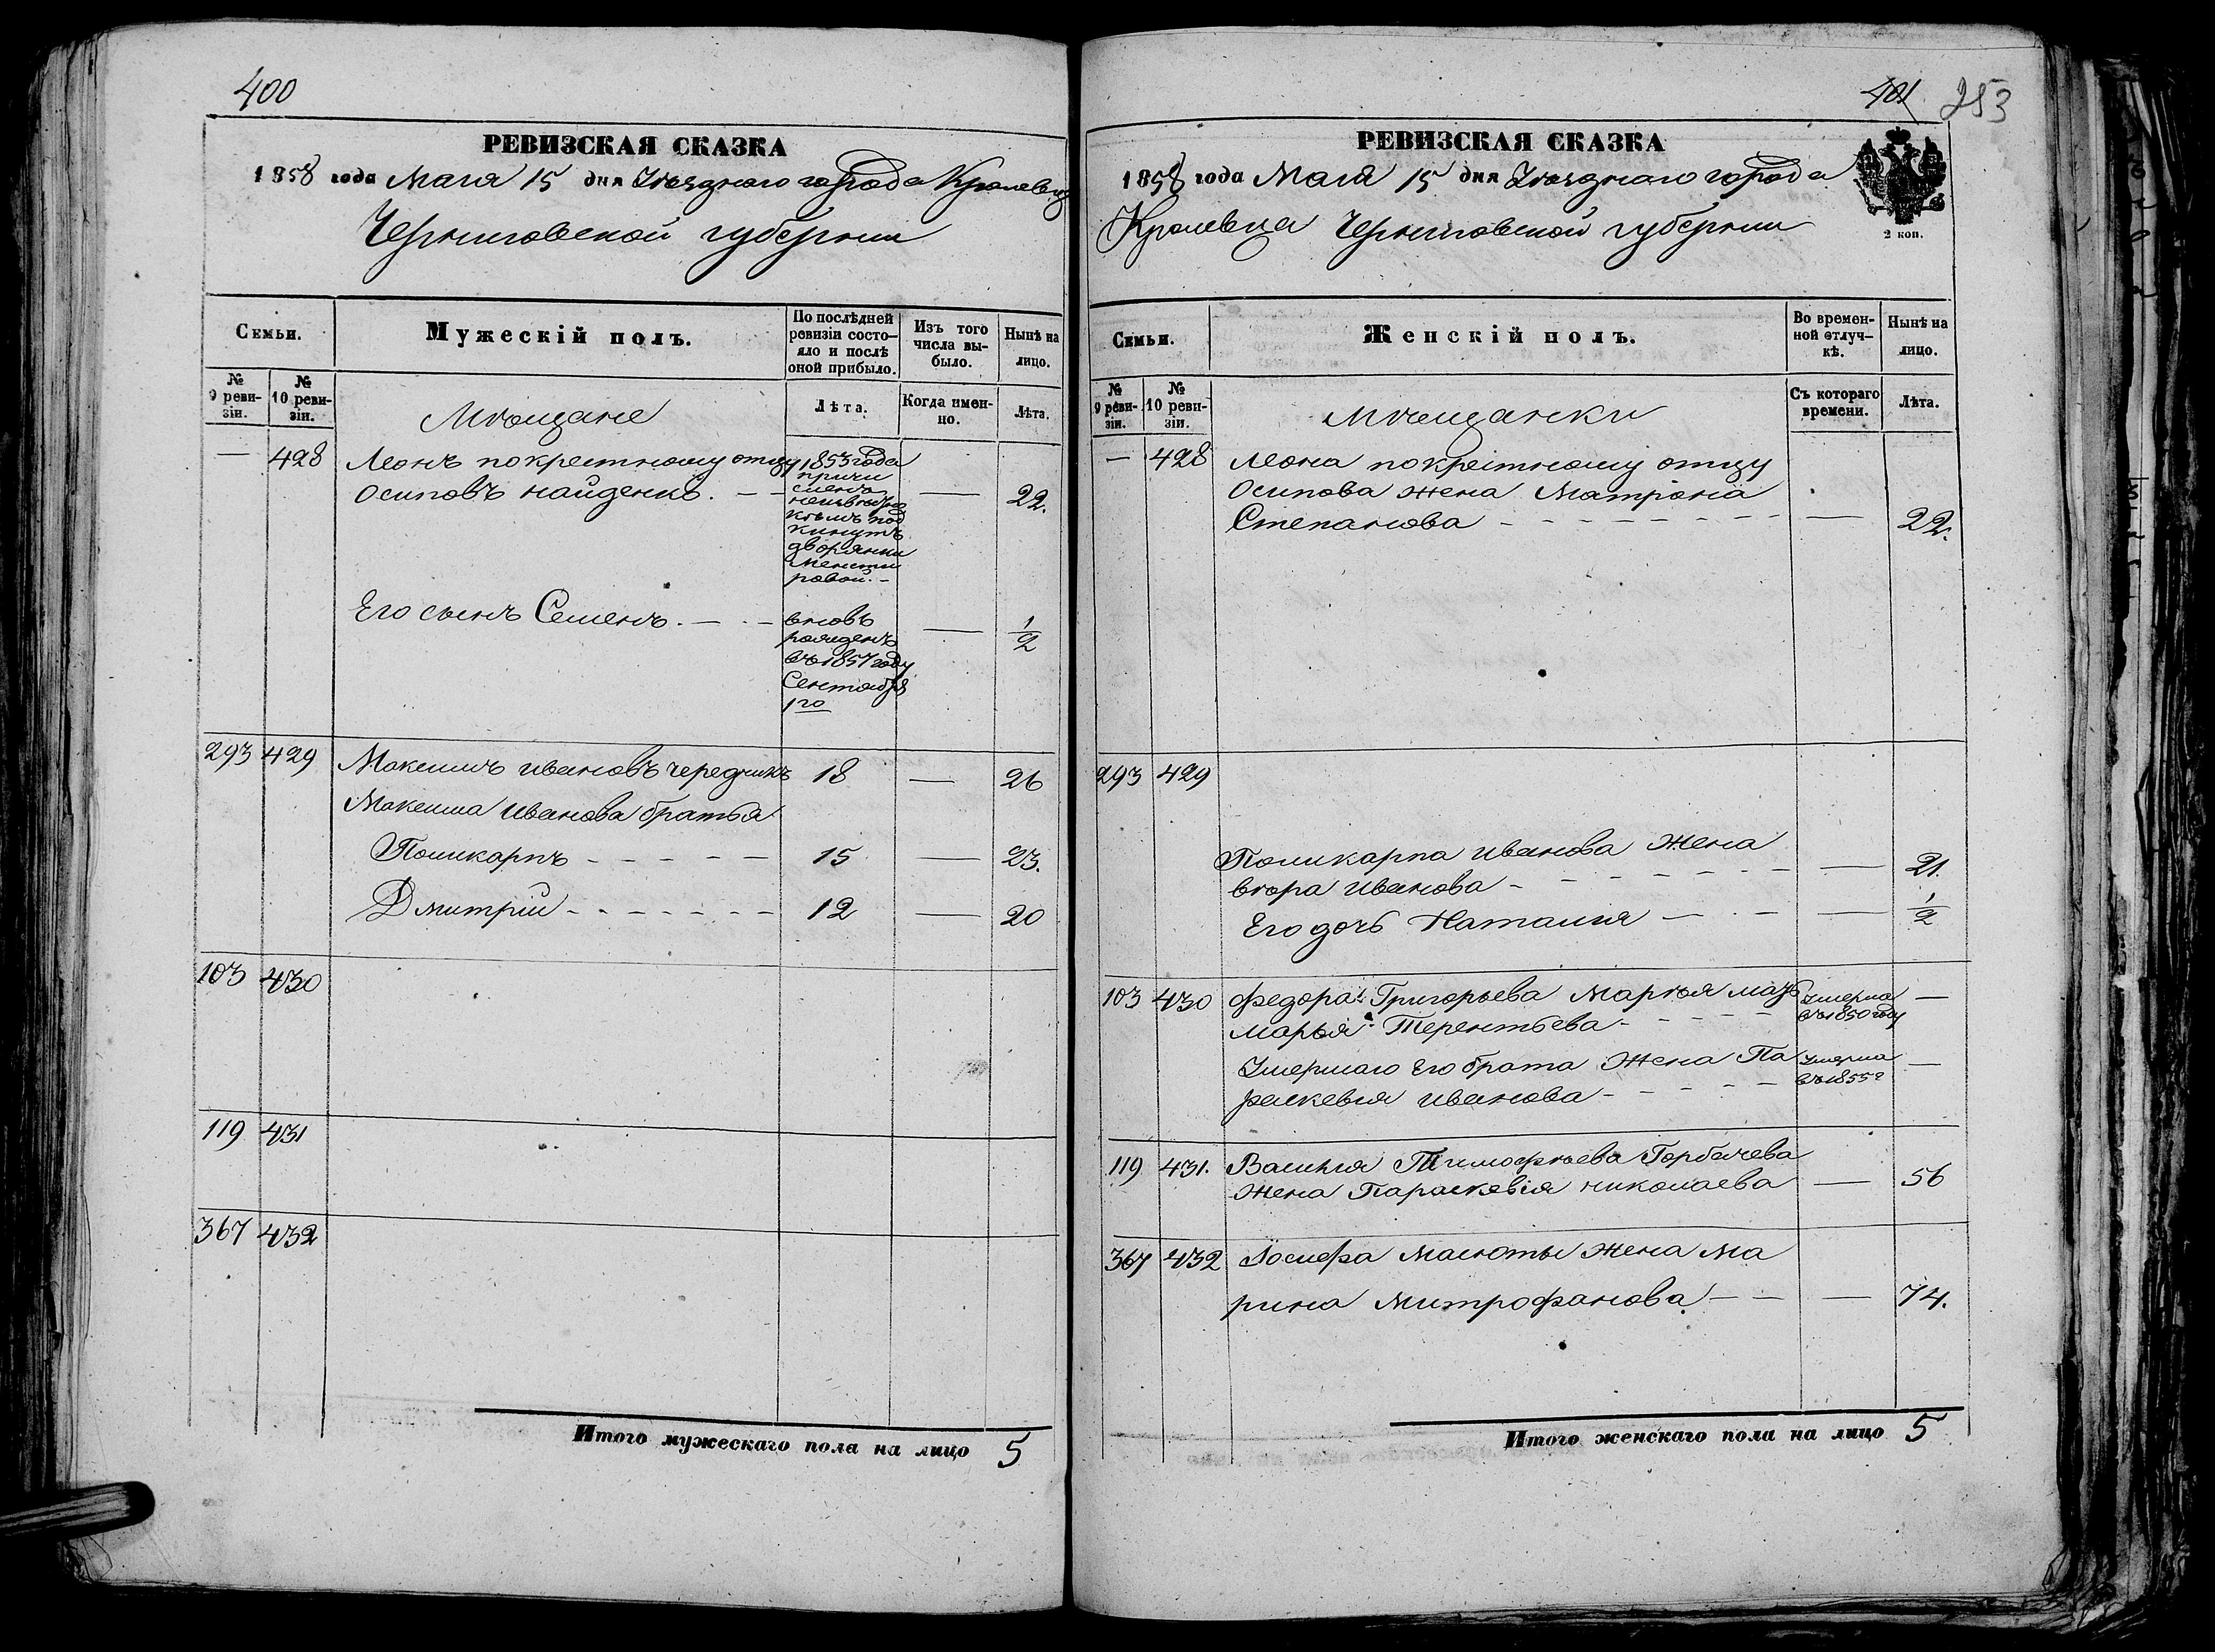 400
РЕВИЗСКАЯ СКАЗКА
1858 года Маія 15 дня Уѣзднаго города Кролевца
Черниговской губерніи
Семьи.
Мужескій полъ.
По послѣдней ревизіи состояло и послѣ оной прибыло.
Изъ того числа выбыло.
Нынѣ на лицо.
№ 9 ревизіи.
№ 10 ревизіи.
Лѣта.
Когда именно.
Лѣта.
Мѣщане
— 428 Леонъ по крестному отцу
Осиповъ Найденко. — — — 22.
1853 года
причи
сленъ
неизвѣстно
кѣмъ под
кинутъ
дворянки
ровой. —
Его сынъ Семенъ. — — — 1/2
вновь
рожденъ
въ 1857 году
Сентября
1го
293 429 Максимъ Ивановъ Чередникъ 18 — 26
Максима Иванова братья
Поликарпъ - - - - - 15 — 23.
Дмитрій - - - - - - 12 — 20
103 430
119 431
367 432
Итого мужескаго пола на лицо 5
401 253
РЕВИЗСКАЯ СКАЗКА
1858 года Маія 15 дня Уѣзднаго города
Кролевца Черниговской губерніи
2 коп.
Семьи.
Женскій полъ.
Во временной отлучкѣ.
Нынѣ на лицо.
№ 9 ревизіи.
№ 10 ревизіи.
Съ котораго времени.
Лѣта.
Мѣщанки
— 428 Леона по крестному отцу
Осипова жена Матрона
Степанова - - - - - - - - — 22.
293 429
Поликарпа Иванова жена
Вѣра Иванова - - - - - - - — 21.
Его дочь Наталия — - - — 1/2
103 430 Федора Григорьева мать умерла —
Марья Терентьева - - - - - въ 1850 году
Умершаго Его брата жена Па умерла —
раскевия Иванова - - - - - въ 1855 г
119 431. Василия Тимофѣева Горбачева
жена Параскевія Николаева — 56
367 432 Іосифа Масюты жена Ма
рина Митрофанова — — — 74.
Итого женскаго пола на лицо 5